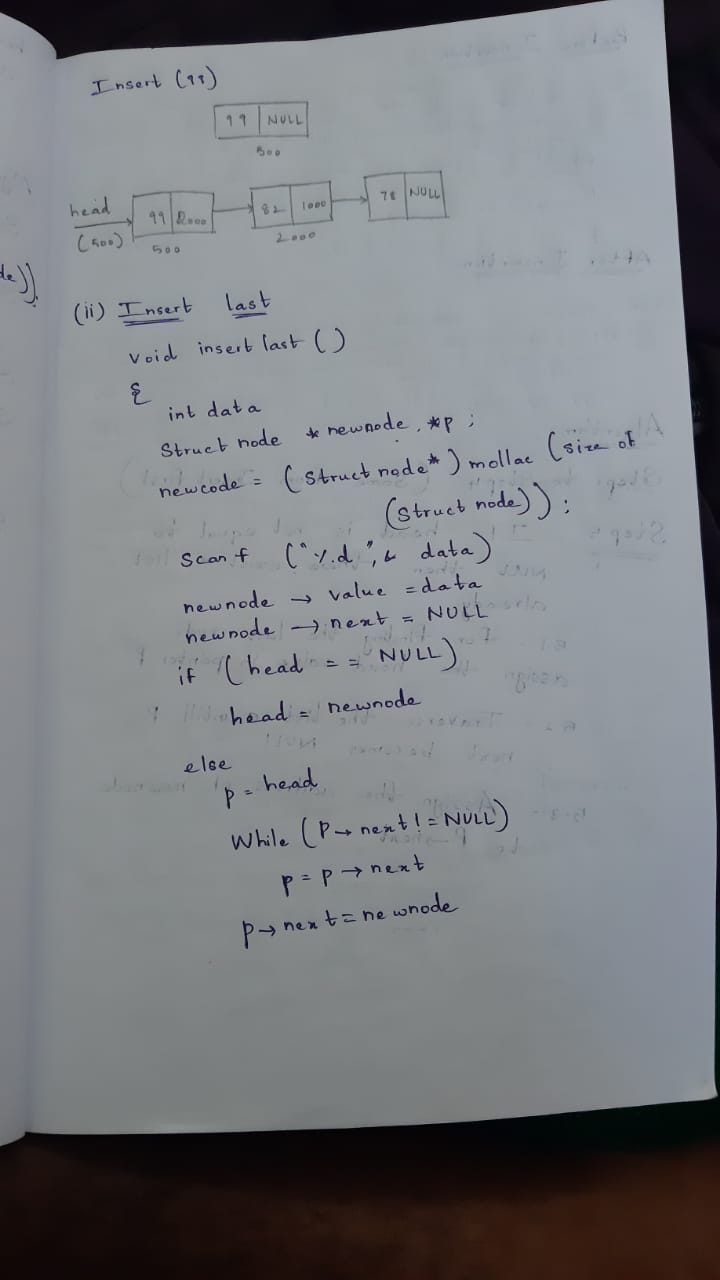 Insert (99)
99 NULL
500
head 99 2000 82 1000 78 NULL
(500) 500 2000
de)).
(ii) Insert last
void insert last ()
{
int data
Struct node * newnode, *p ;
newcode = (Struct node*) mollac (size of
(Struct node)) ;
Scanf ("%d", & data)
newnode → value = data
newnode → next = NULL
if (head = = NULL)
head = newnode
else
p = head
While (P → next ! = NULL)
p = p → next
p → next = newnode